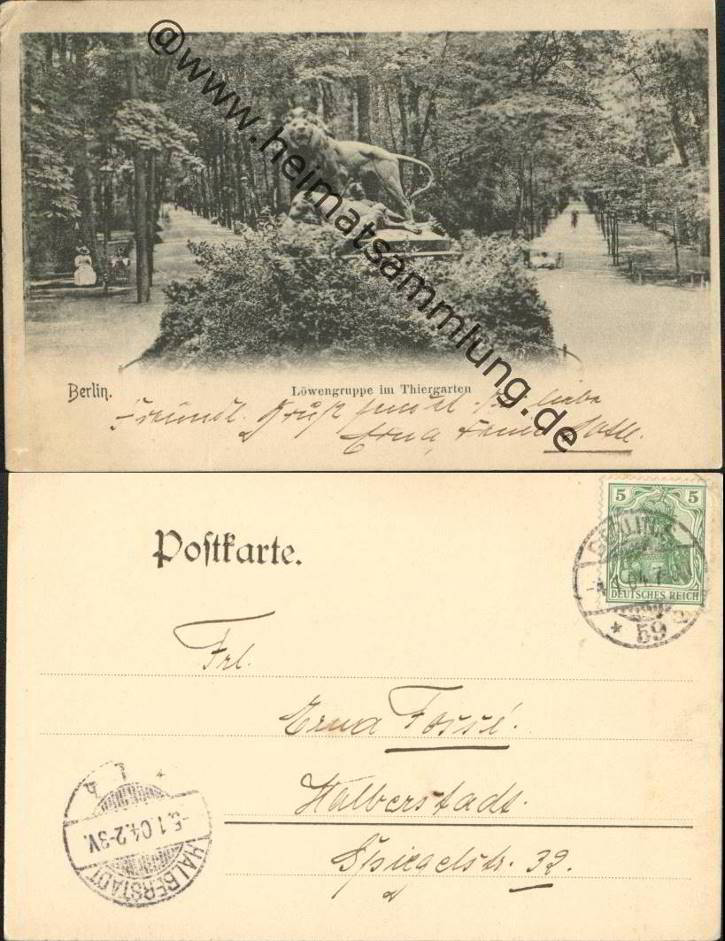 @www.heimatsammlung.de
Berlin.
Löwengruppe im Thiergarten
Freundl. Gruß sendet liebe
Erna
Postkarte.
5 5
DEUTSCHES REICH
BERLIN S.
59
Frl.
Erna Fossé.
Halberstadt.
Spiegelstr. 32.
-5.1.04.2-3V.
HALBERSTADT